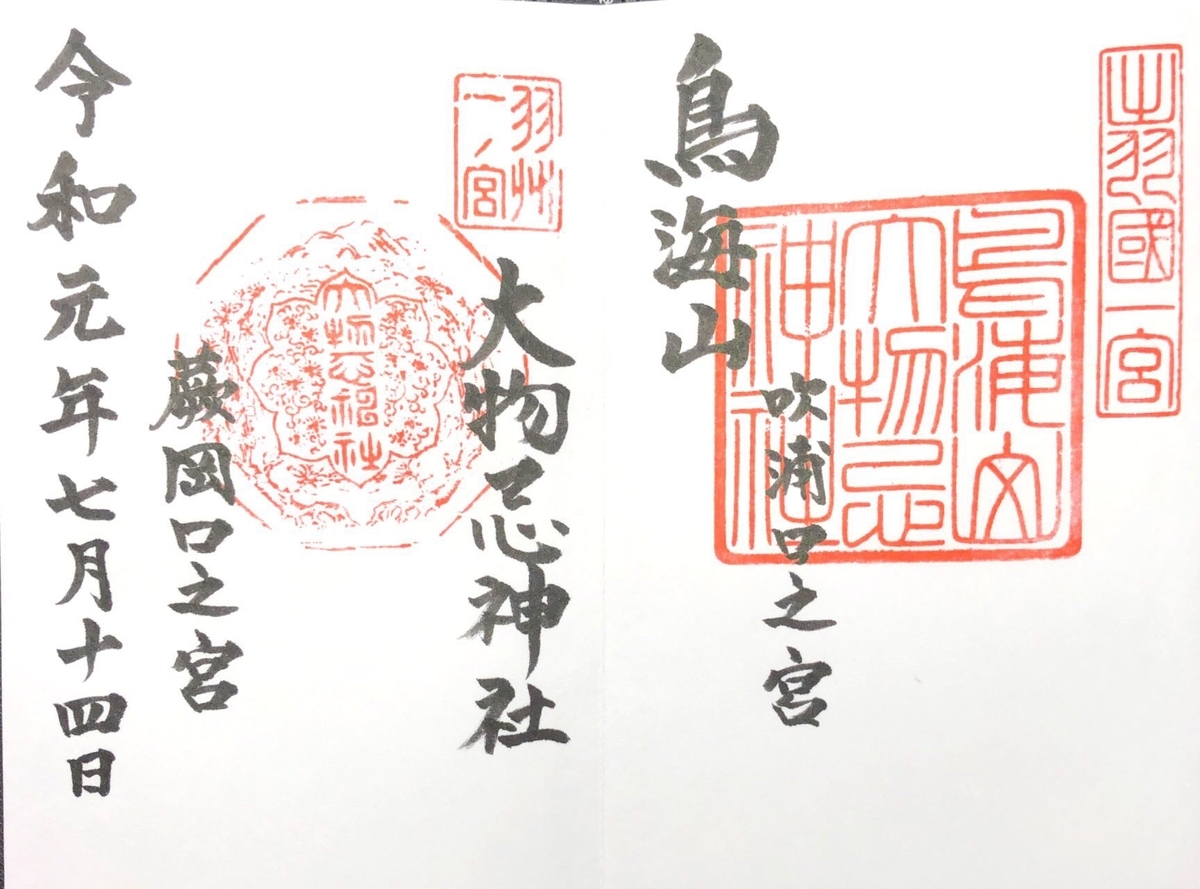 出羽國一宮
鳥海山
大物忌
神社
吹浦口之宮
鳥海山
羽州
一ノ宮
大物忌神社
大物忌神社
蕨岡口之宮
令和元年七月十四日